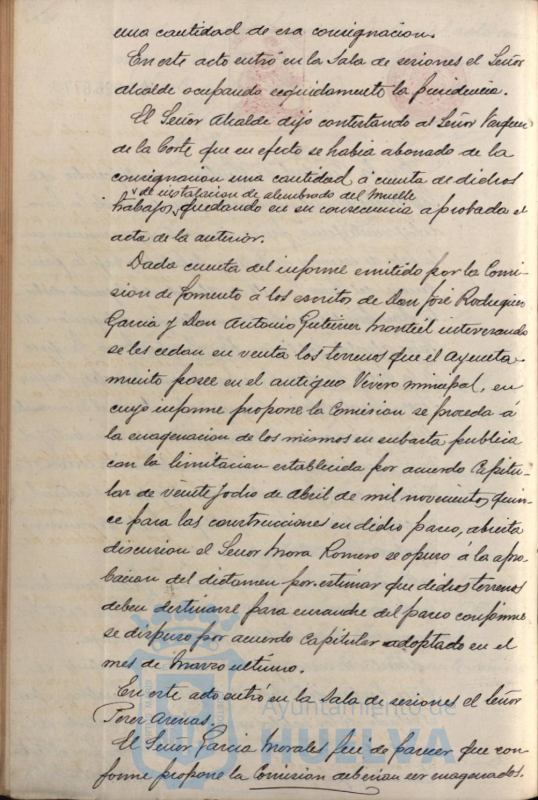 una cantidad de esa consignacion.
En este acto entró en la Sala de sesiones el Señor
alcalde ocupando seguidamente la presidencia.
El Señor Alcalde dijo contestando al Señor Vazquez
de la Corte que en efecto se habia abonado de la
consignacion una cantidad á cuenta de dichos
de instalacion de alumbrado del Muelle
trabajos, quedando en su consecuencia aprobada el
acta de la anterior.
Dada cuenta del informe emitido por la Comi-
sion de fomento á los escritos de Don José Rodriguez
Garcia y Don Antonio Gutierrez Montiel interesando
se les cedan en venta los terrenos que el Ayunta-
miento posee en el antiguo Vivero municipal, en
cuyo informe propone la Comision se proceda á
la enagenacion de los mismos en subasta publica
con la limitacion establecida por acuerdo Capitu-
lar de veinte y ocho de Abril de mil novecientos quin-
ce para las construcciones en dicho paseo, abierta
discusion el Señor Mora Romero se opuso á la apro-
bacion del dictamen por estimar que dichos terrenos
deben destinarse para ensanche del paseo conforme
se dispuso por acuerdo Capitular adoptado en el
mes de Marzo ultimo.
En este acto entró en la Sala de sesiones el Señor
Perez Arenas.
El Señor Garcia Morales fue de parecer que con-
forme propone la Comision deberian ser enagenados.
Ayuntamiento de
HUELVA